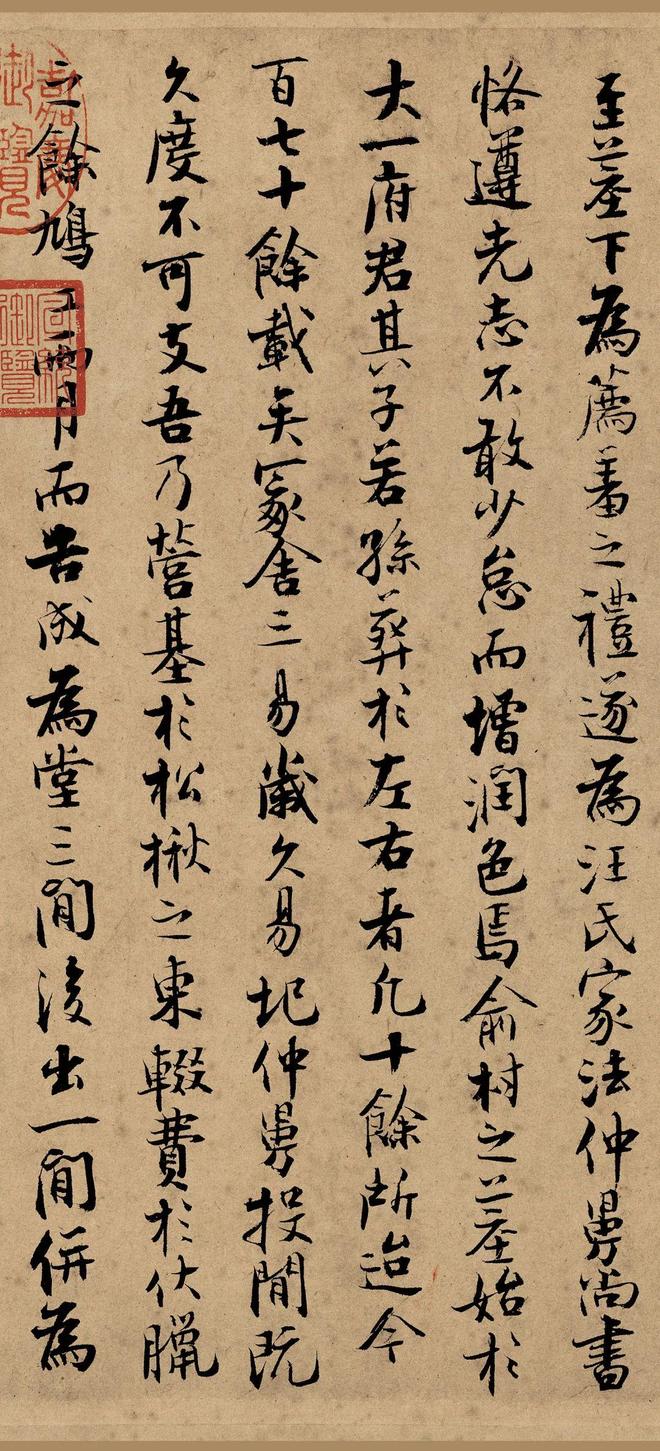 至墓下為薦羞之禮遂為汪氏家法仲舅尚書
恪遵先志不敢少怠而增潤色焉俞村之墓始於
大一府君其子若孫葬於左右者凡十餘所迨今
百七十餘載矣冢舍三易歲久易圮仲舅投閒既
久度不可支吾乃營基於松楸之東輟費於伏臘
之餘鳩工一兩月而告成為堂三間後出一間併為
嘉慶御覽
御覽